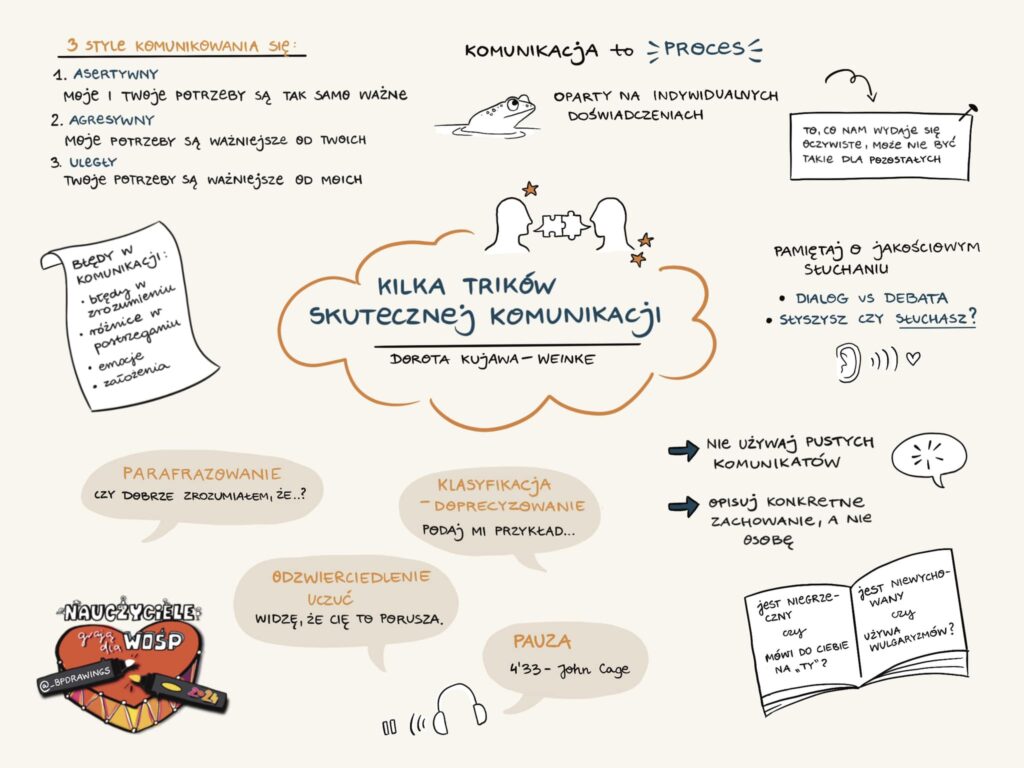 3 STYLE KOMUNIKOWANIA SIĘ:
1. ASERTYWNY
MOJE I TWOJE POTRZEBY SĄ TAK SAMO WAŻNE
2. AGRESYWNY
MOJE POTRZEBY SĄ WAŻNIEJSZE OD TWOICH
3. ULEGŁY
TWOJE POTRZEBY SĄ WAŻNIEJSZE OD MOICH
KOMUNIKACJA to PROCES
OPARTY NA INDYWIDUALNYCH
DOŚWIADCZENIACH
TO, CO NAM WYDAJE SIĘ
OCZYWISTE, MOŻE NIE BYĆ
TAKIE DLA POZOSTAŁYCH
BŁĘDY W
KOMUNIKACJI:
• błędy w
zrozumieniu
• różnice w
postrzeganiu
• emocje
• założenia
KILKA TRIKÓW
SKUTECZNEJ KOMUNIKACJI
DOROTA KUJAWA-WEINKE
PAMIĘTAJ O JAKOŚCIOWYM
SŁUCHANIU
• DIALOG VS DEBATA
• SŁYSZYSZ CZY SŁUCHASZ?
PARAFRAZOWANIE
CZY DOBRZE ZROZUMIAŁEM, ŻE..?
KLASYFIKACJA
- DOPRECYZOWANIE
PODAJ MI PRZYKŁAD...
ODZWIERCIEDLENIE
UCZUĆ
WIDZĘ, ŻE CIĘ TO PORUSZA.
PAUZA
4'33 - John Cage
NIE UŻYWAJ PUSTYCH
KOMUNIKATÓW
OPISUJ KONKRETNE
ZACHOWANIE, A NIE
OSOBĘ
JEST NIEGRZE-
CZNY
czy
MÓWI DO CIEBIE
NA „TY"?
JEST NIEWYCHO-
WANY
czy
UŻYWA
WULGARYZMÓW?
NAUCZYCIELE
grają
dla WOŚP
@_BPDRAWINGS
2024